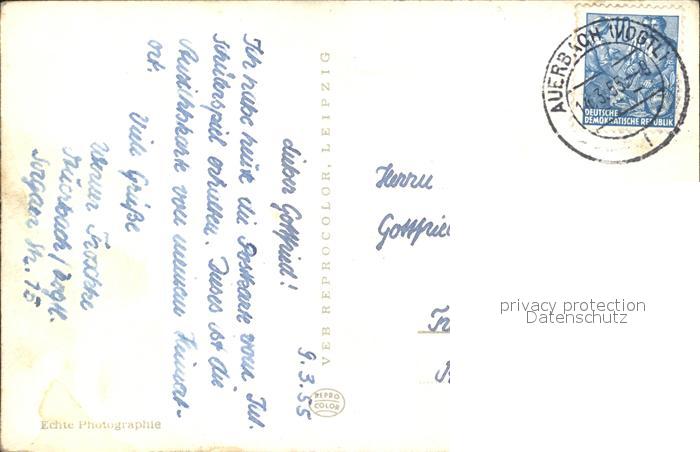 9.3.55
Lieber Gottfried!
Ich habe heute die Postkarte vom Tul.
Schülerspiel erhalten. Dieses ist die
Ansichtskarte von meinem Heimat-
ort.
Viele Grüße
Werner
Auerbach / Vogtl.
Sorgaer Str. 15
VEB REPROCOLOR, LEIPZIG
REPRO
COLOR
Echte Photographie
AUERBACH (VOGTL)
DEUTSCHE
DEMOKRATISCHE REPUBLIK
Herrn
Gottfrie
privacy protection
Datenschutz